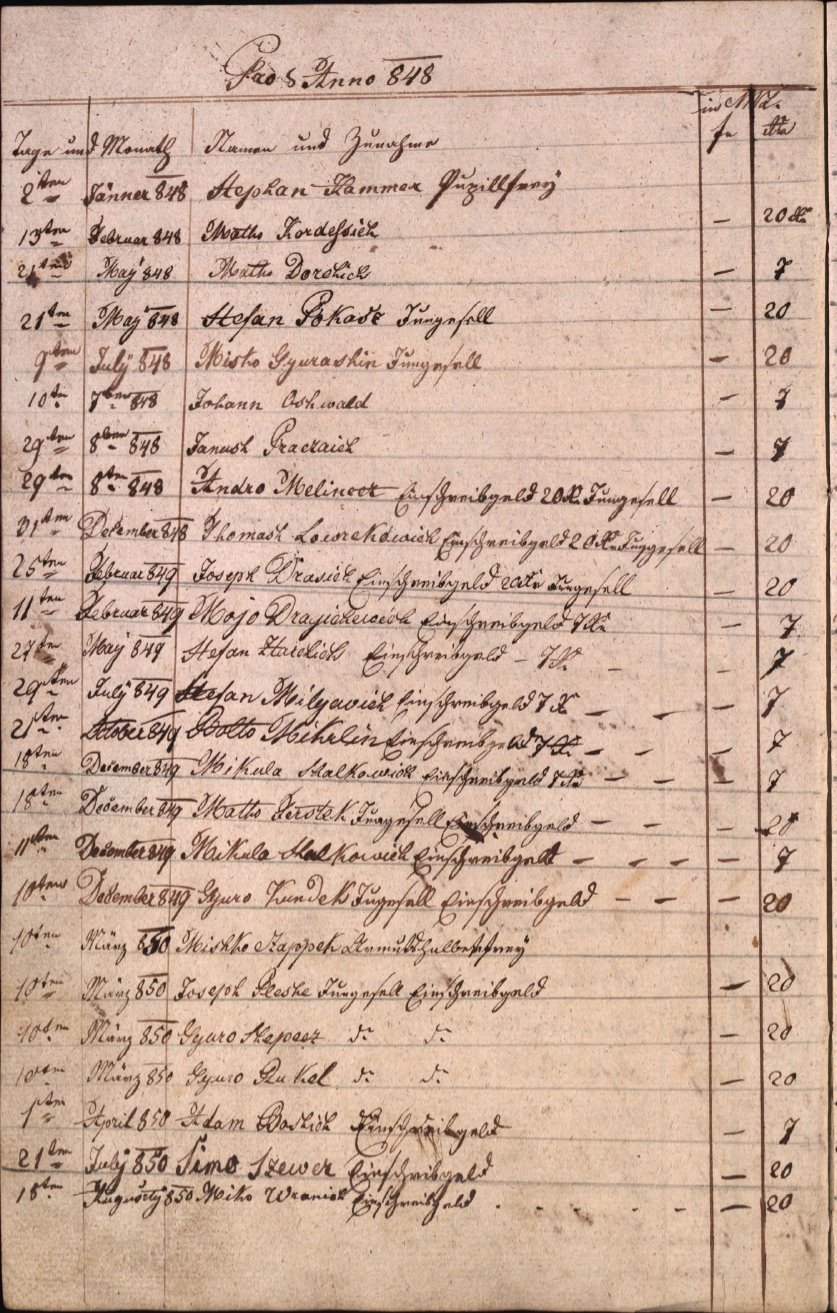 Pro Anno 848
in MZ.
Tage und Monath Namen und Zunahme fr Xr
2ten Jänner 848 Stephan Kammer Pupillfrey
13ten Februar 848 Matho Kordessich — 20 Xr
21ten May 848 Matho Dorchich — 7
21ten May 848 Stefan Pokasz Jungesell — 20
9ten July 848 Misko Gyuraskin Jungesell — 20
10ten 7ber 848 Johann Oshwald — 7
29ten 8ber 848 Janush Praczaich — 7
29ten 8ber 848 Andro Melincet Einschreibgeld 20 Xr Jungesell — 20
31ten December 848 Thomash Lowrekowich Einschreibgeld 20 Xr Jungesell — 20
25ten Februar 849 Joseph Drasich Einschreibgeld 20 Xr Jungesell — 20
11ten Februar 849 Mojo Einschreibgeld 7 Xr — 7
27ten May 849 Stefan Einschreibgeld — 7 Xr — — 7
29ten July 849 Stefan Milyavich Einschreibgeld 7 Xr — — — 7
21ten October 849 Bolto Mikrlin Einschreibgeld 7 Xr — — — 7
18ten December 849 Mikula Halkowich Einschreibgeld 7 Xr — — — 7
18ten December 849 Matho Ferstek Jungesell Einschreibgeld — — — 20
11ten December 849 Mikula Halkowich Einschreibgeld — — — — 7
10ten December 849 Gyuro Kundek Jugesell Einschreibgeld — — — 20
10ten März 850 Mishko Stappek Armuth halber frey
10ten März 850 Joseph Pleshe Jungesell Einschreibgeld — 20
10ten März 850 Gyuro dto dto — 20
10ten März 850 Gyuro Pukel dto dto — 20
1ten April 850 Adam Boshich Einschreibgeld — 7
21ten July 850 Simo Szewer Einschreibgeld — 20
18ten Augusty 850 Miko Wranich Einschreibgeld — 20